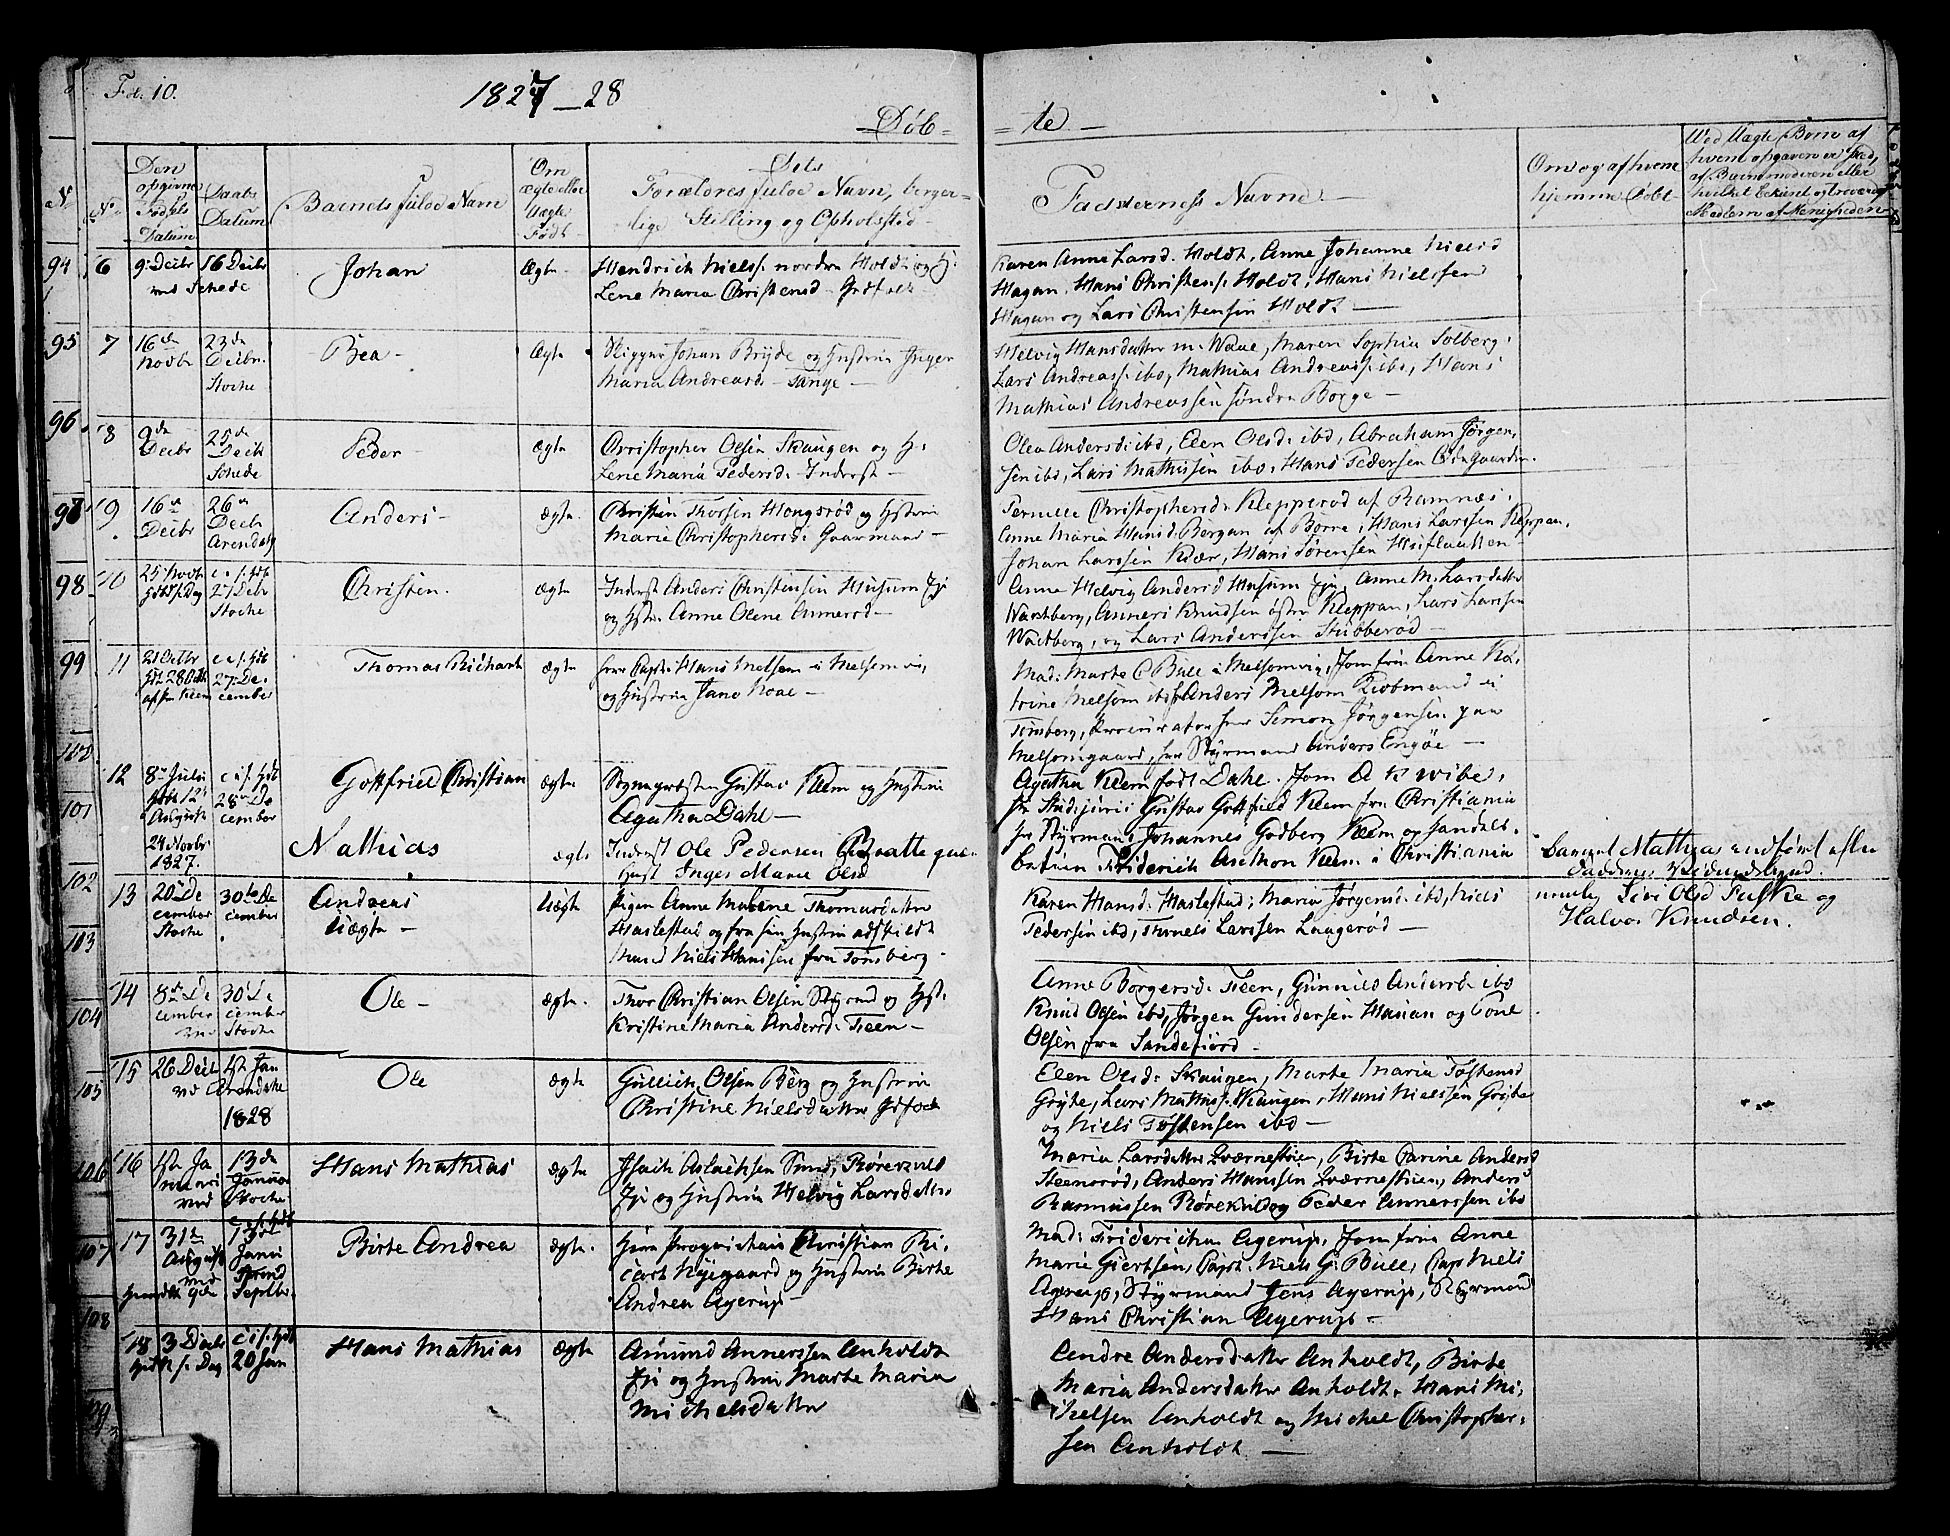 Fol. 10.
1827_28
Døb-
-te.-
No
No
Den
opgivne
Fødsels
Datum
Daabs
Datum
Barnets fulde Navn
Om
ægte eller
Uægte
Født-
Dets
Forældres fulde Navn, borger-
lige Stilling og Opholdsstæd-
Faddernes Navne -
Om og af hvem
hjemme Døbt-
Ved Uægte Børn af
hvem opgaven er skeed,
af Barnemoderen eller
Medlem af Menigheden
94 6 9: Decbr 16 Decbr Johan Ægte- Hendrich Nielss: nordre Holdt og H:
Lene Maria Christensd-
Karen Anne Larsd. Holdt, Anne Johanne Nielsd
Hagan, Hans Christenss: Holdt, Hans Nielssen
Hagan og Lars Christensen Holdt -
95 7 16de Novbr 23de Decbr. Stoche Bea- Ægte Skipper Johan Bryde og Hustrue Inger
Maria Andreasd- Tange-
Helvig Hansdatter, Maren Sophia Solberg,
Lars Andreass: ibd, Mathias Andreass: ibd, Hans
Mathias Andreassen søndre Borge-
96 8 9de Decbr 25de Decb Schede Peder- ægte Christopher Olsen Skaugen og H:
Lene Maria Pedersd: Inderst-
Olea Andersd: ibd, Elen Olsd: ibd, Abraham Jørgen,
sen ibd, Lars Mathissen ibd, Hans Pedersen Ødegaarden.
97 9 16de Decbr 26de Decb Arendahl Anders- ægte. Christen Thorsen Hongsrød og Hustrue
Marie Christophersd: Gaarmand-
Pernille Christophersd: Klepperød af Ramnæs,
Anne Maria Hansd: Bergan af Borre, Hans Larssen Kleppan,
Johan Larssen Kiær, Hans Sørensen
98 10 25: Novb 27 Debr Stoche Christen. ægte Inderst Anders Christensen Husum Eje
og Hst: Anne Olene Annersd-
Anne Helvig Andersd Husum Eje, Anne M. Larsdatter
Wachberg, Anners Knudsen østre Kleppan, Lars Larssen
Wachberg, og Lars Anderssen Stubberød-
99 11 21 Octbr 27: De-
cember Thomas Richard ægte Herr Capt: Hans Melsom i Melsomvig,
og Hustrue Jane Noae-
Mad: Marte C Bull i Melsomvig, Jomfrue Anne Ka,
trine Melsom ibd, Anders Melsom Kiøbmand i
Tønsberg, Procurator Herr Simon Jørgensen paa
Melsomgaard, Herr Styrmand Anders Engøe-
100 12 8de Julii 28de De
cember Gottfried Christian ægte Gustav Klem og Hustrue
Agatha Dahl-
Agatha Klem født Dahl, Jom A K Wibe,
Hr Stud: juris Gustav Gottfried Klem fra Christiania
Hr Styrmand Johannes Godberg Klem og Handels,
betien Friderich Anthon Klem i Christiania
101 24 Novbr
1827. Mathias ægte Inderst Ole Pedersen
Hust Inger Marie Olsd
Barnet Mathias indført efter
Faddernes Vidnesbyrd.
nemlig Siri Olsd Fuske og
Halvor Knudsen.
102 13 20de De
cember
Stoche 30te De
cember Andreas
Uægte- Uægte Pigen Anne Malene Thomasdatter
Haslestad og fra sin Hustrue adskildt
Mand Niels Hanssen fra Tønsberg-
Karen Hansd: Haslestad, Maria Jørgensd: ibd, Niels
Pedersen ibd, Larssen Laagerød-
103
14 8de De
cember 30 De
cember
Stoche Ole- ægte. Thor Christian Olsen Styrmd og Hst:
Kristine Maria Andersd: Feen-
Anne Borgersd: Feen, Gunnild Andersd: ibd
Knud Olsen ibd, Jørgen Gundersen Hasan og Poul
Olsen fra Sandefiord-
104
15 26 Decb 1ste Jan
1828 Ole ægte Gullich Olsen Berg og Hustrue
Christine Nielsdatter
Elen Olsd: Skaugen, Marte Maria Tostensd
Gryte, Lars Mathiss: Skaugen, Hans Nielssen Gryte
og Niels Tostensen ibd-
105
106 16 1ste Ja
nuari 13de
Januar
Stoche Hans Mathias ægte Isach Aslachsen Sund, Rørekuld
Eje og Hustrue Helvig Larsdatter
Maria Larsdatter, Birte Carine Andersd
Steensrød, Anders Hanssen, Anders
Rasmussen Rørekuld og Peder Annerssen ibd
107 17 31te
August 13de
Janu Birte Andrea ægte. Herr Proprietair Christian Ri,
cart Nyegaard og Hustrue Birte
Andrea Agerup-
Mad: Fridericha Agerup, Jomfrue Anne
Marie Giertsen, Capt. Niels G: Bull, Cap Niels
Agerup, Styrmand Jens Agerup, Styrmand
Hans Christian Agerup-
108 18 3 Decbr 20 Jan Hans Mathias ægte Amund Annerssen Anholdt
Eje og Hustrue Marte Maria
Michelsdatter
Andre Andersdatter Anholdt, Birte
Maria Andersdatter Anholdt, Hans Mi,
kelsen Anholdt og Michel Christopher,
sen Anholdt -
109